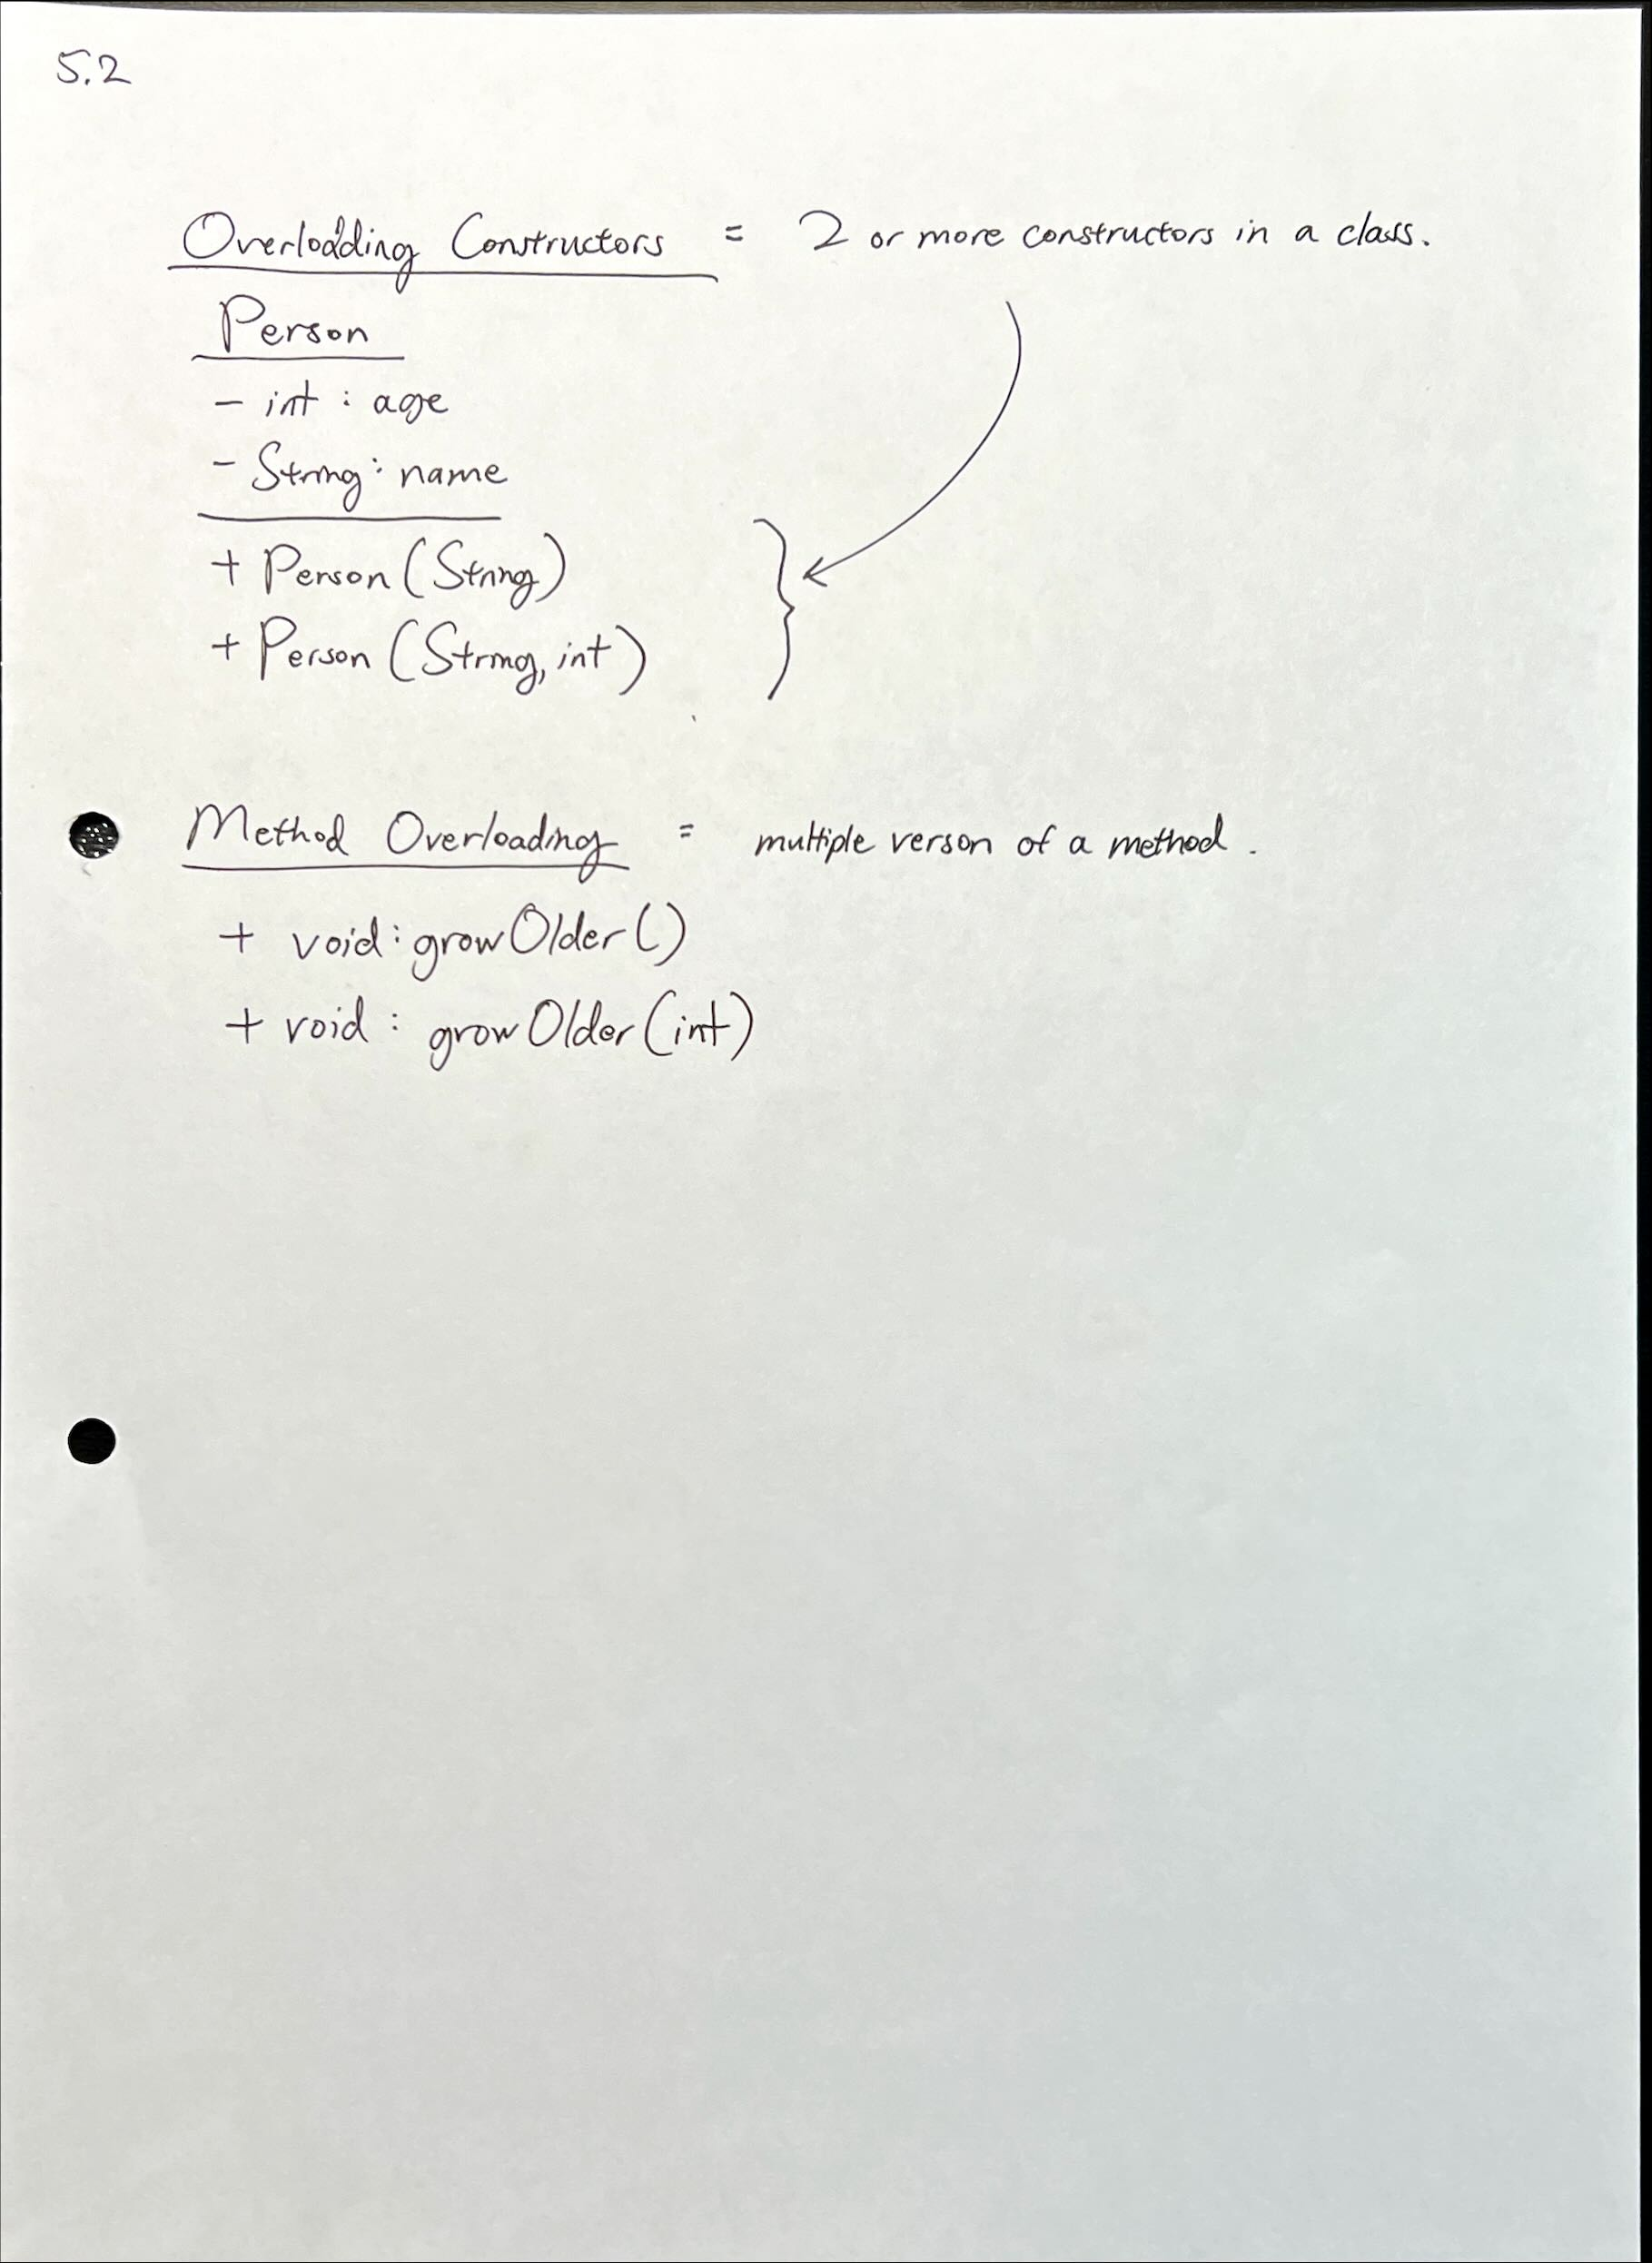 5.2
Overloading Constructors = 2 or more constructors in a class.
Person
- int : age
- String : name
+ Person (String)
+ Person (String, int)
Method Overloading = multiple verson of a method.
+ void : growOlder ()
+ void : growOlder (int)